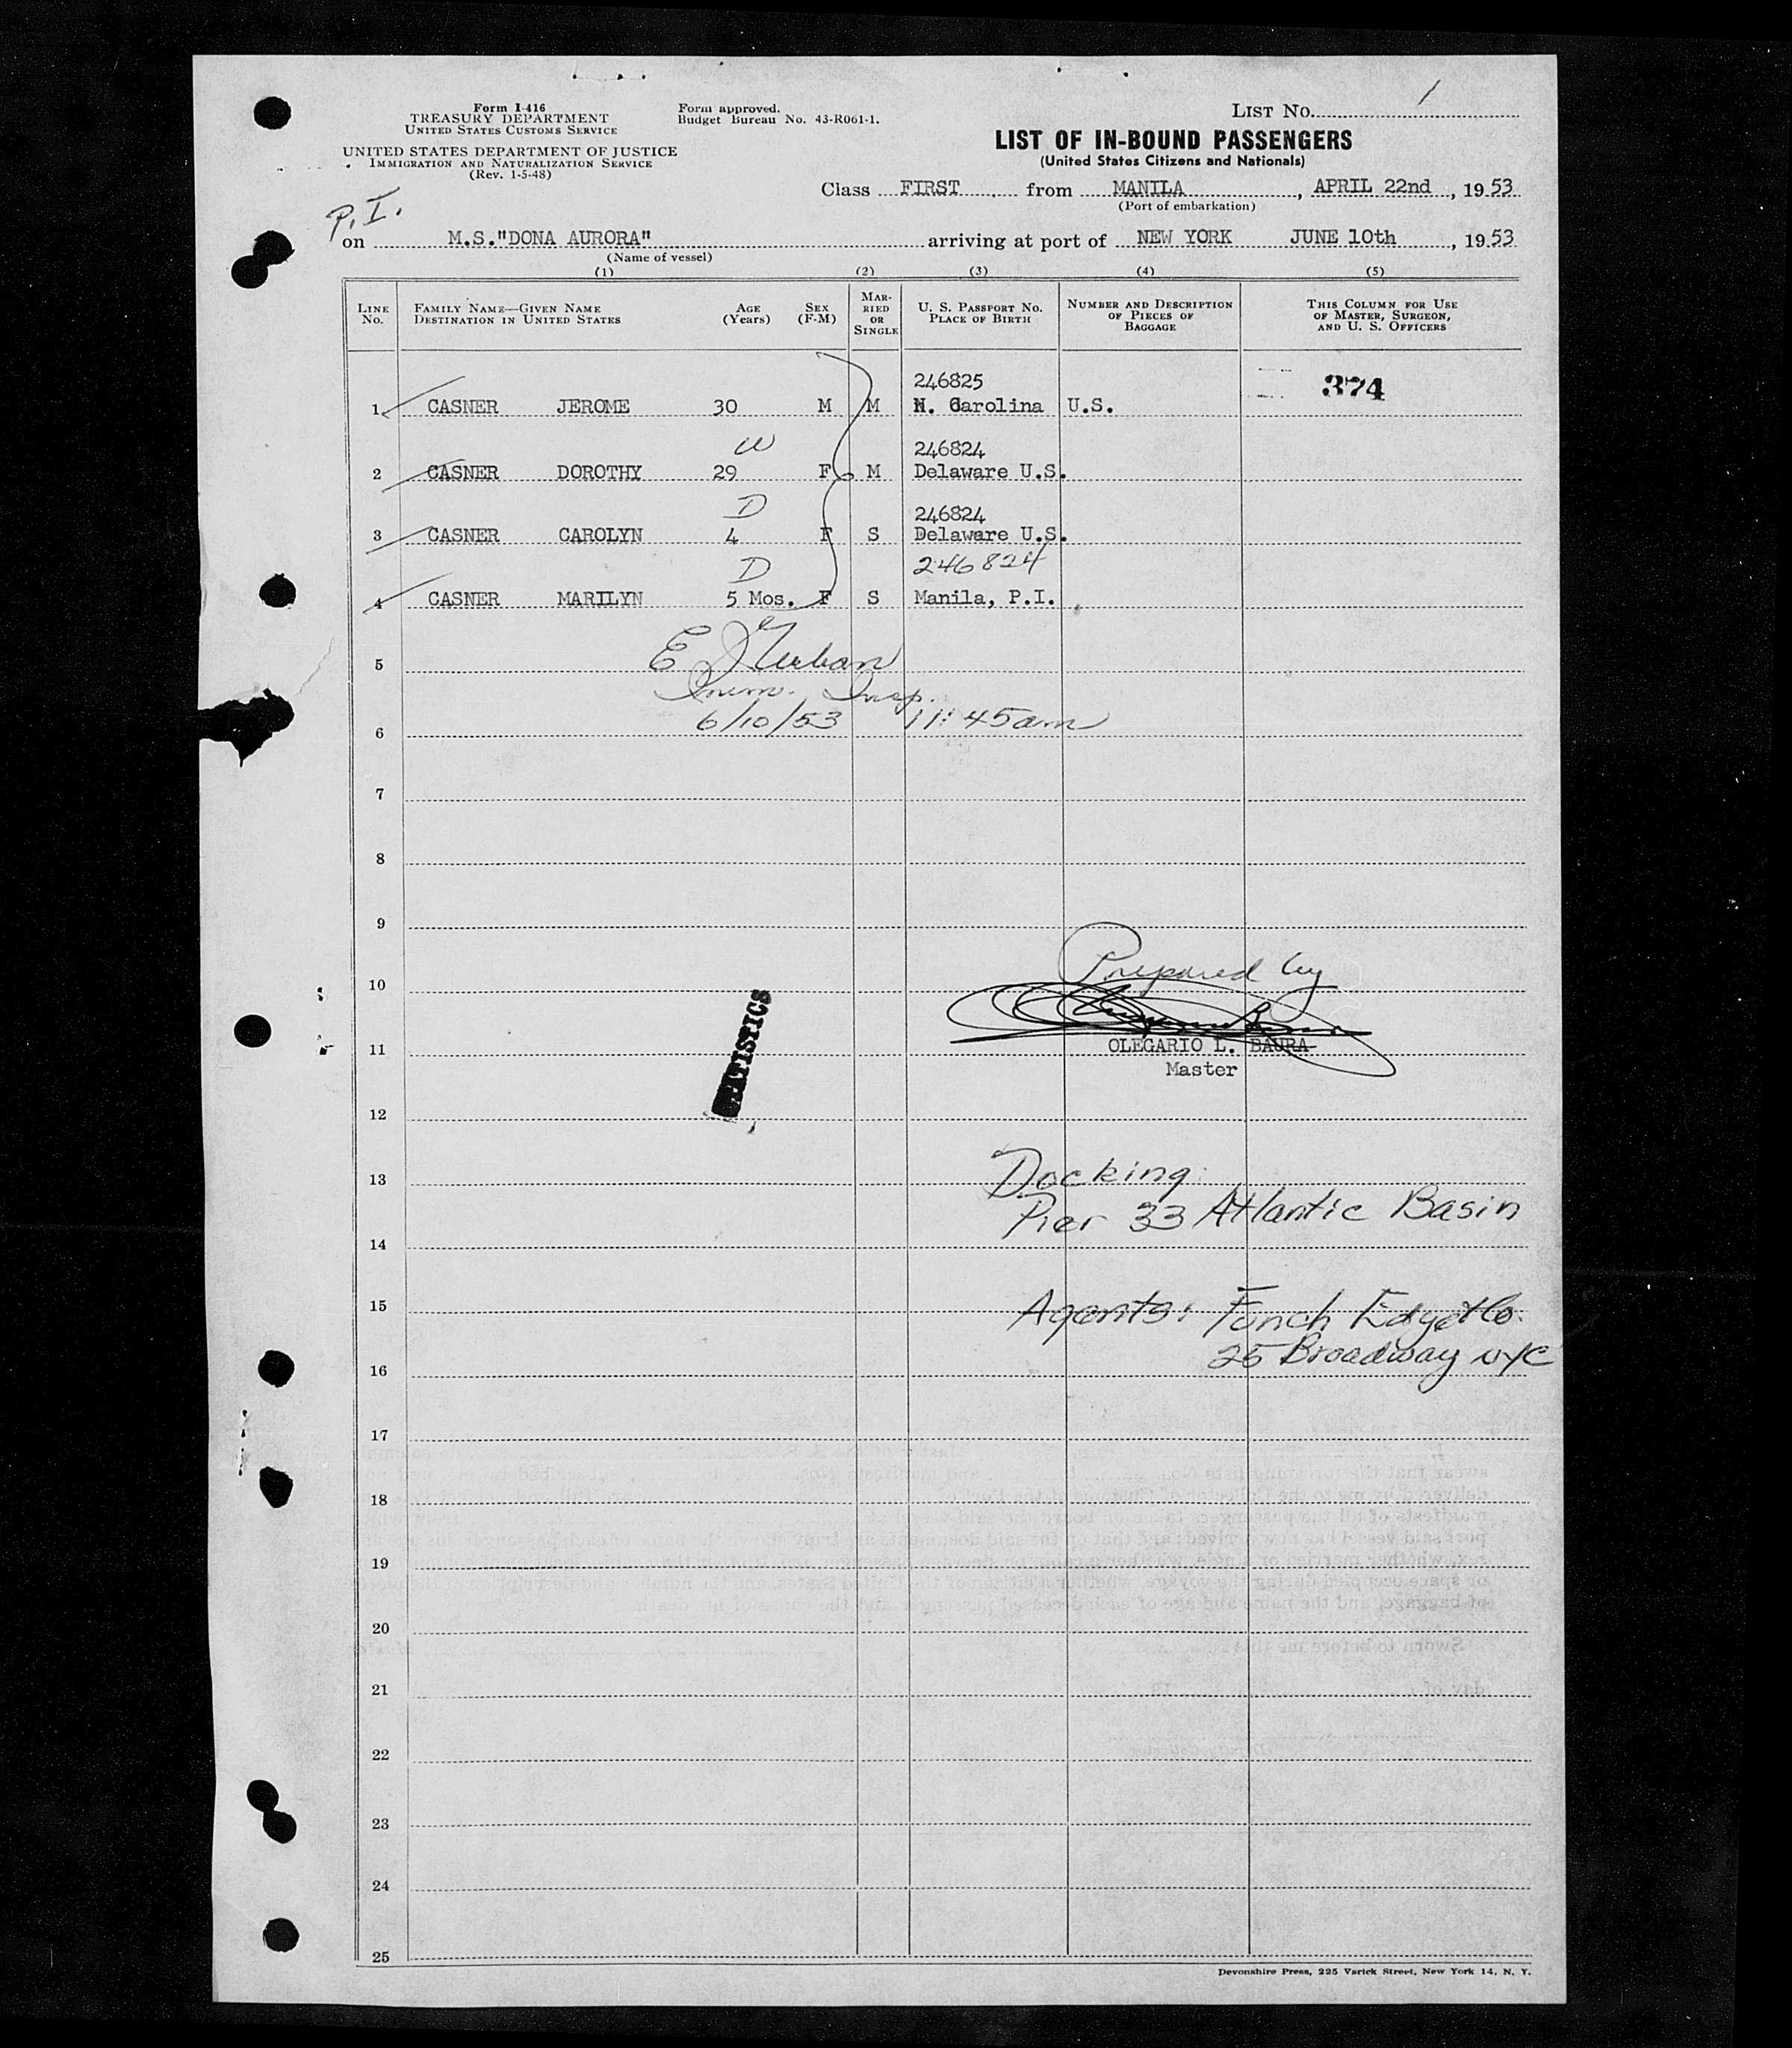 Form I-416
TREASURY DEPARTMENT
UNITED STATES CUSTOMS SERVICE
UNITED STATES DEPARTMENT OF JUSTICE
IMMIGRATION AND NATURALIZATION SERVICE
(Rev. 1-5-48)
Form approved.
Budget Bureau No. 43-R061-1.
LIST NO. 1
LIST OF IN-BOUND PASSENGERS
(United States Citizens and Nationals)
Class FIRST from MANILA, APRIL 22nd, 1953
(Port of embarkation)
P.I.
on M.S."DONA AURORA" arriving at port of NEW YORK JUNE 10th, 1953
(Name of vessel)
(1) (2) (3) (4) (5)
LINE No.
FAMILY NAME—GIVEN NAME
DESTINATION IN UNITED STATES
AGE (Years)
SEX (F-M)
MARRIED OR SINGLE
U. S. PASSPORT NO.
PLACE OF BIRTH
NUMBER AND DESCRIPTION OF PIECES OF BAGGAGE
THIS COLUMN FOR USE OF MASTER, SURGEON, AND U. S. OFFICERS
246825 374
1 CASNER JEROME 30 M M N. Carolina U.S.
W 246824
2 CASNER DOROTHY 29 F M Delaware U.S.
D 246824
3 CASNER CAROLYN 4 F S Delaware U.S.
D 246824
4 CASNER MARILYN 5 Mos. F S Manila, P.I.
E
5
Imm. Insp.
6/10/53 11:45am
6
7
8
9
Prepared by
10
STATISTICS
11 OLEGARIO L. BAURA
Master
12
Docking:
13
Pier 33 Atlantic Basin
14
15 Agents: Funch Edye & Co.
25 Broadway NYC
16
17
18
19
20
21
22
23
24
25
Devonshire Press, 225 Varick Street, New York 14, N. Y.